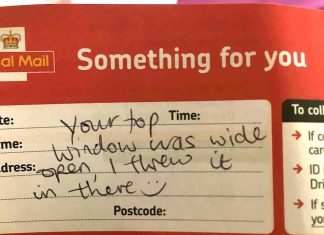 al Mail
Something for you
te: Your top Time:
me: window was wide
ddress: open, I threw it
in there
Postcode:
To coll
If o
car
ID
Dri
If s
you